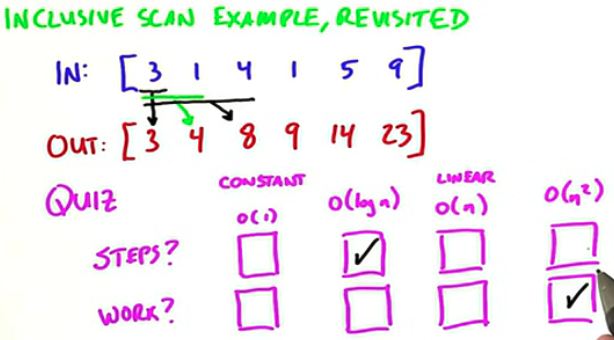 INCLUSIVE SCAN EXAMPLE, REVISITED
IN: [3 1 4 1 5 9]
OUT: [3 4 8 9 14 23]
QUIZ
CONSTANT LINEAR
O(1) O(log n) O(n) O(n²)
STEPS? ✓
WORK? ✓